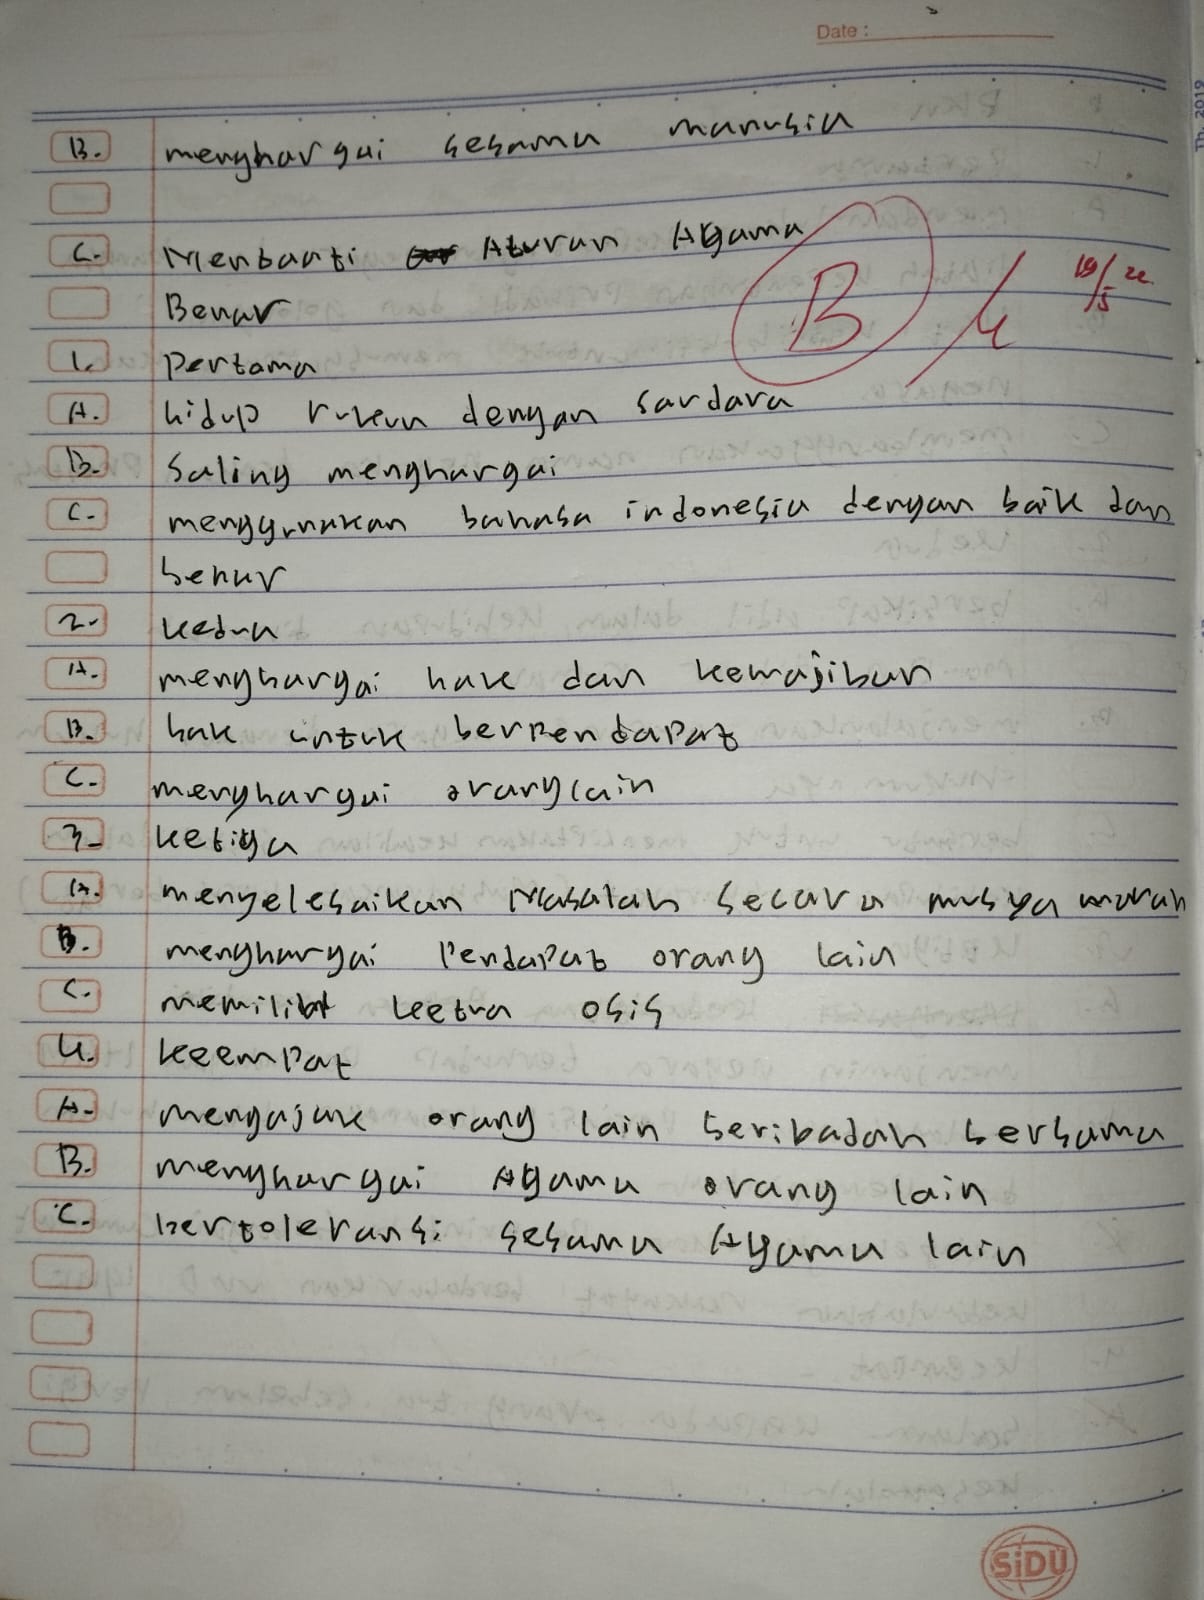 Date :
B. menghargai sesama manusia
C. Mentaati Aturan Agama
Benar
1. Pertama
A. hidup rukun dengan sardara
B. Saling menghargai
C. menggunakan bahasa indonesia dengan baik dan
benar
2. kedua
A. menghargai hak dan kewajiban
B. hak untuk berpendapat
C. menghargai orang lain
3. ketiga
A. menyelesaikan Masalah secara musyamarah
B. menghargai Pendapat orang lain
C. memilih ketua osis
4. keempat
A. mengajak orang lain beribadah bersama
B. menghargai Agama orang lain
C. bertoleransi sesama Agama lain
B
19/5 22
SiDU